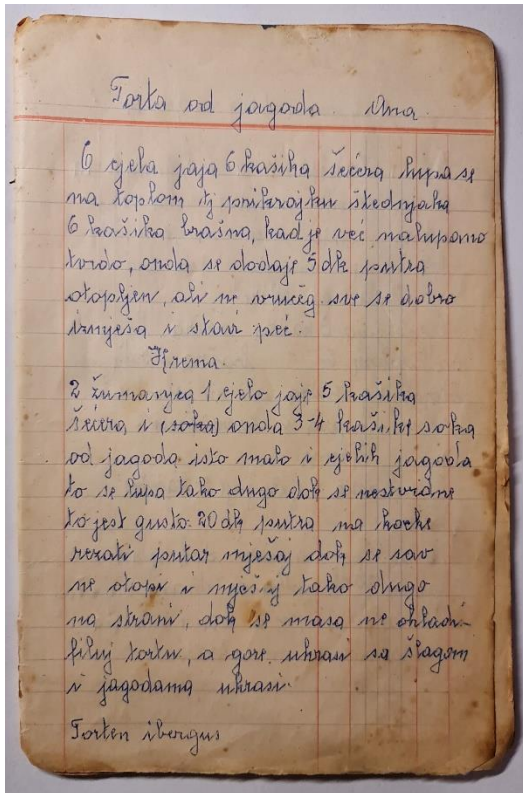 Torta od jagoda. Ana.
6 cjela jaja 6 kašika šećera lupa se
na toplom tj prikrajku štednjaka
6 kašika brašna, kad je već nalupano
tvrdo, onda se dodaje 5 dk putra
otopljen, ali ne vrućeg sve se dobro
izmješa i stavi peć.
Krema.
2 žumanjca 1 cjelo jaje 5 kašika
šećera i (soka) onda 3-4 kašike soka
od jagoda isto malo i cjelih jagoda
to se lupa tako dugo dok se nestvrdne
to jest gusto. 20 dk putra na kocke
rezati putar mješaj dok se sav
ne otopi i mješaj tako dugo
na strani, dok se masa ne ohladi-
filuj tortu, a gore ukrasi sa šlagom
i jagodama ukrasi.
Torten ibergus